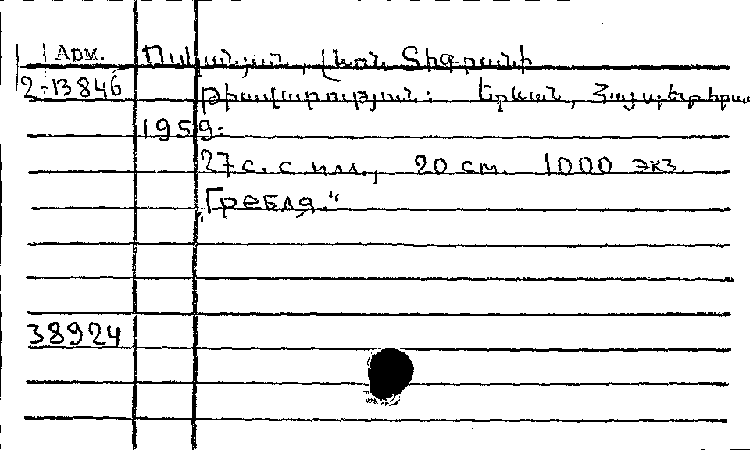 Арм. Ոսկանյան, Լևոն Տիգրանի
2-13846 Թիավարություն: Երևան, Հայպետհրատ
1959:
27 с. с илл., 20 см. 1000 экз.
„Гребля.“
38924